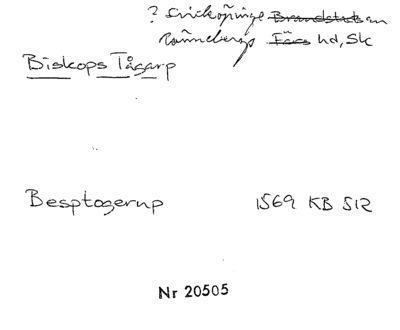 ? Svinköpinge Brandstad an
Rönnebergs Färs hd, Sk
Biskops Tågarp
Besptogerup 1569 KB 512
Nr 20505